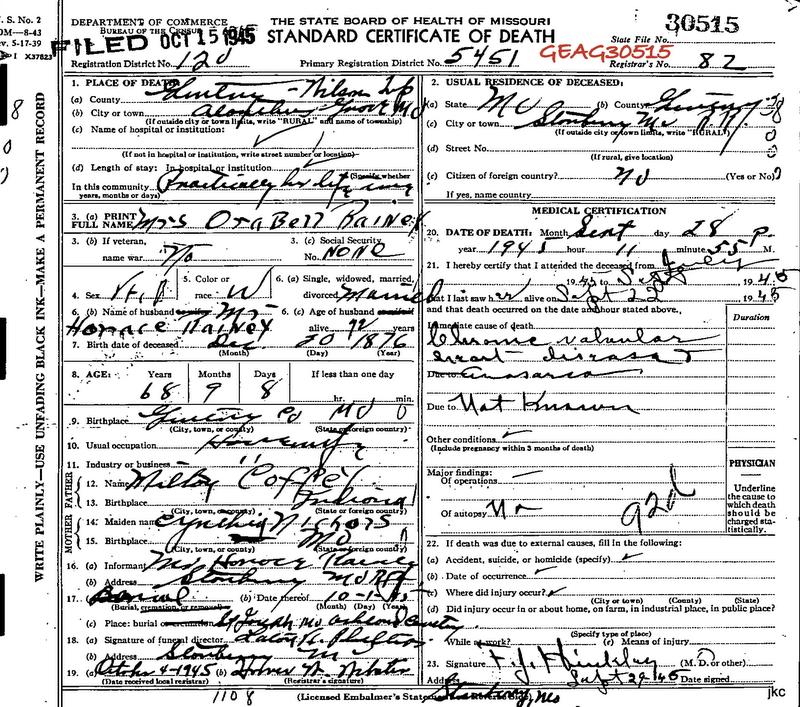 S. No. 2
OM—8-43
ev. 5-17-39
I X37823
DEPARTMENT OF COMMERCE
BUREAU OF THE CENSUS
FILED OCT 15 1945
THE STATE BOARD OF HEALTH OF MISSOURI
STANDARD CERTIFICATE OF DEATH
30515
State File No.
GEAG30515
Registration District No. 120
Primary Registration District No. 5451
Registrar's No. 82
WRITE PLAINLY—USE UNFADING BLACK INK—MAKE A PERMANENT RECORD
1. PLACE OF DEATH:
(a) County Gentry - Wilson Twp
(b) City or town Alanthus Grove Mo
(If outside city or town limits, write "RURAL" and name of township)
(c) Name of hospital or institution:
(If not in hospital or institution, write street number or location)
(d) Length of stay: In hospital or institution
(Specify whether
In this community Practically her life time
years, months or days)
3. (a) PRINT FULL NAME Mrs Ora Bell Rainey
3. (b) If veteran, name war No
3. (c) Social Security No. NONE
4. Sex
5. Color or race W
6. (a) Single, widowed, married, divorced Married
6. (b) Name of husband Mr Horace Rainey
6. (c) Age of husband alive 72 years
7. Birth date of deceased Dec 20 1876
(Month) (Day) (Year)
8. AGE: Years 68 Months 9 Days 8
If less than one day
hr. min.
9. Birthplace Gentry Co Mo
(City, town, or county) (State or foreign country)
10. Usual occupation Housewife
11. Industry or business
FATHER
12. Name Milton Coffey
13. Birthplace Indiana
(City, town, or county) (State or foreign country)
MOTHER
14. Maiden name Cynthia Nichols
15. Birthplace Mo
(City, town, or county) (State or foreign country)
16. (a) Informant Mr Horace Rainey
(b) Address Stanberry Mo
17. Burial (b) Date thereof 10-1-45
(Burial, cremation, or removal) (Month) (Day) (Year)
(c) Place: burial St Joseph Mo Ashland Cemetery
18. (a) Signature of funeral director
(b) Address Stanberry Mo
19. (a) October 4-1945 (b)
(Date received local registrar) (Registrar's signature)
2. USUAL RESIDENCE OF DECEASED:
(a) State Mo (b) County Gentry
(c) City or town Stanberry Mo
(If outside city or town limits, write "RURAL")
(d) Street No.
(If rural, give location)
(e) Citizen of foreign country? No (Yes or No)
If yes, name country
MEDICAL CERTIFICATION
20. DATE OF DEATH: Month Sept day 28
year 1945 hour 11 minute 55 P. M.
21. I hereby certify that I attended the deceased from
1945 to Sept 1945
that I last saw her alive on Sept 22 1945
and that death occurred on the date and hour stated above.
Duration
Immediate cause of death
Chronic valvular
heart disease
Due to Anasarca
Due to Not Known
Other conditions
(Include pregnancy within 3 months of death)
PHYSICIAN
Underline the cause to which death should be charged statistically.
Major findings:
Of operations
Of autopsy No
92d
22. If death was due to external causes, fill in the following:
(a) Accident, suicide, or homicide (specify)
(b) Date of occurrence
(c) Where did injury occur?
(City or town) (County) (State)
(d) Did injury occur in or about home, on farm, in industrial place, in public place?
(Specify type of place)
While at work? (e) Means of injury
23. Signature (M. D. or other)
Address Stanberry, Mo Date signed Sept 29 45
1108
(Licensed Embalmer's Statement on Reverse Side)
jkc